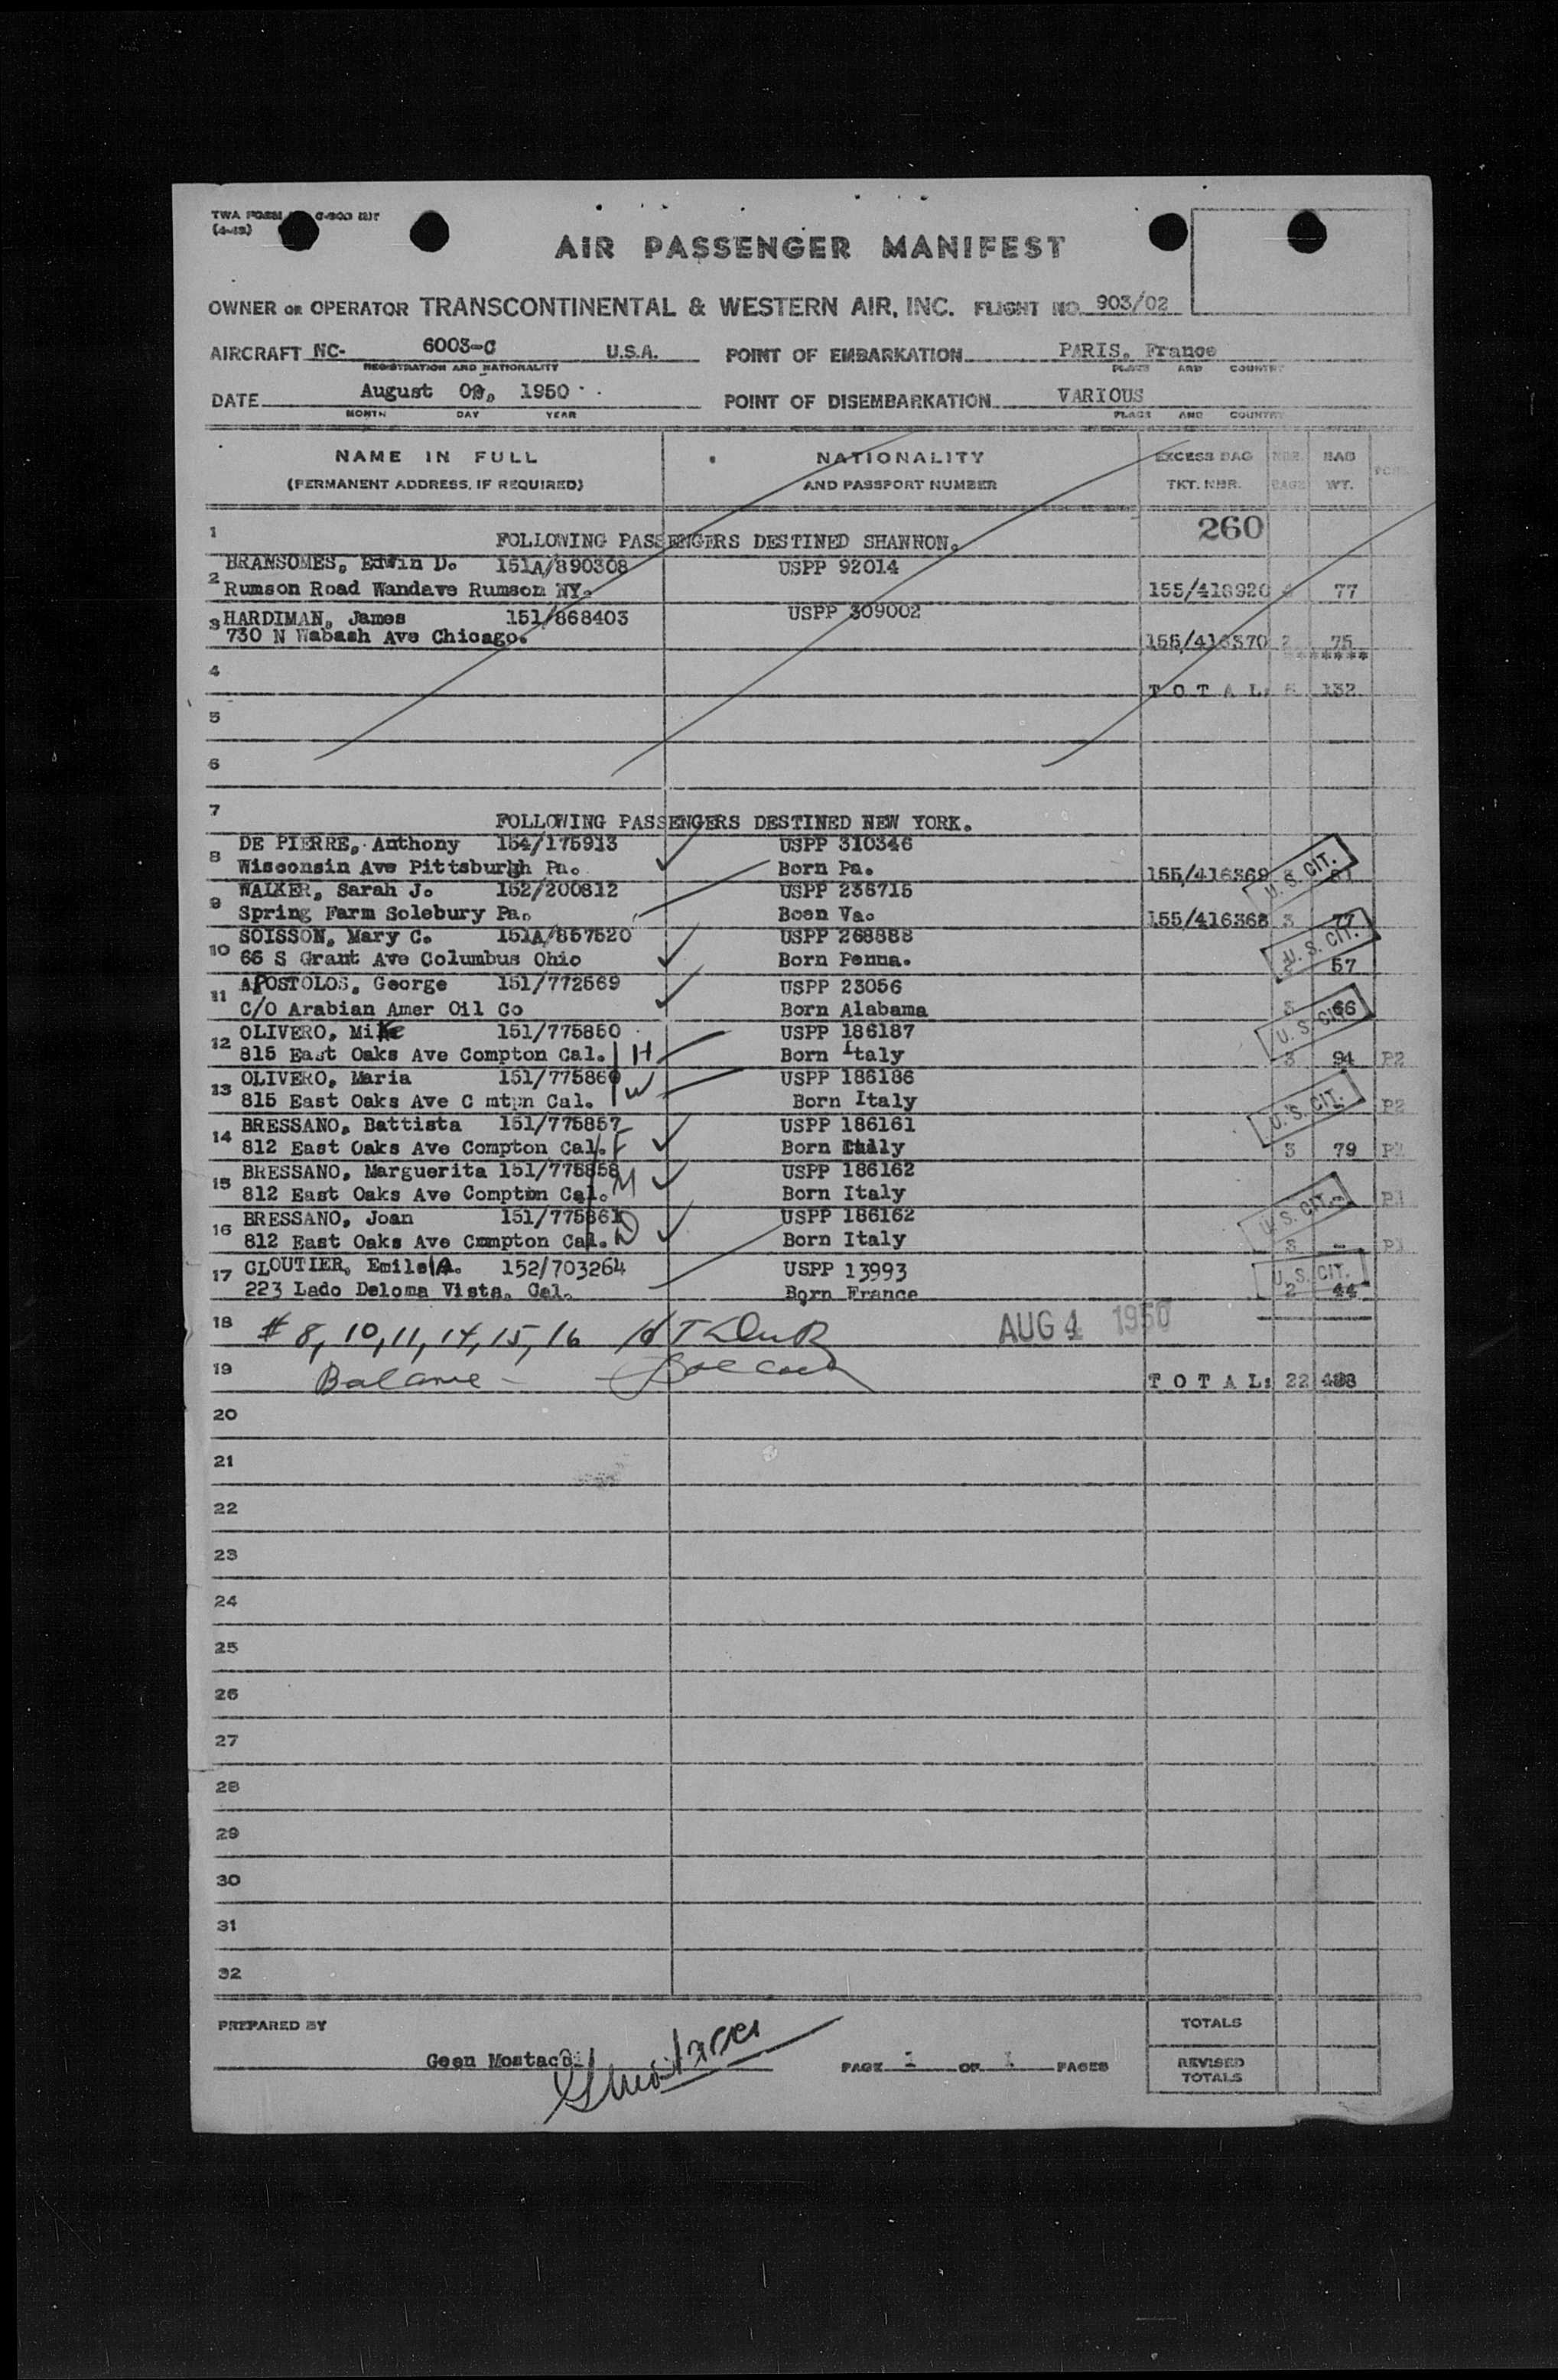 TWA FORM
(4-49)
AIR PASSENGER MANIFEST
OWNER OR OPERATOR TRANSCONTINENTAL & WESTERN AIR, INC. FLIGHT NO. 903/02
AIRCRAFT NC- 6003-C U.S.A. POINT OF EMBARKATION PARIS, France
REGISTRATION AND NATIONALITY PLACE AND COUNTRY
DATE August 1950 POINT OF DISEMBARKATION VARIOUS
MONTH DAY YEAR PLACE AND COUNTRY
NAME IN FULL NATIONALITY EXCESS BAG NBR. BAG
(PERMANENT ADDRESS, IF REQUIRED) AND PASSPORT NUMBER TKT. NBR. BAGS WT.
260
1 FOLLOWING PASSENGERS DESTINED SHANNON.
BRANSOMES, Edwin D. 151A/890308 USPP 92014
2 Rumson Road Wandave Rumson NY. 155/418920 77
3 HARDIMAN, James 151/868403 USPP 309002
730 N Wabash Ave Chicago. 155/416370 2 75
*******
4 T O T A L: 132
5
6
7 FOLLOWING PASSENGERS DESTINED NEW YORK.
DE PIERRE, Anthony 154/175913 USPP 310346
8 Wisconsin Ave Pittsburgh Pa. Born Pa. 155/416369 U.S. CIT.
WALKER, Sarah J. 152/200812 USPP 236715
9 Spring Farm Solebury Pa. Boen Va. 155/416368 3 77
SOISSON, Mary C. 151A/857520 USPP 268888 U.S. CIT.
10 66 S Grant Ave Columbus Ohio Born Penna. 57
APOSTOLOS, George 151/772569 USPP 23056
11 C/O Arabian Amer Oil Co Born Alabama 3 66
OLIVERO, Mike 151/775850 USPP 186187 U.S. CIT.
12 815 East Oaks Ave Compton Cal. H Born Italy 3 94 P2
OLIVERO, Maria 151/775860 USPP 186186
13 815 East Oaks Ave C mtpn Cal. W Born Italy U.S. CIT. P2
BRESSANO, Battista 151/775857 USPP 186161
14 812 East Oaks Ave Compton Cal. F Born Italy 3 79
BRESSANO, Marguerita 151/775858 USPP 186162
15 812 East Oaks Ave Compton Cal. M Born Italy U.S. CIT. -
BRESSANO, Joan 151/775861 USPP 186162
16 812 East Oaks Ave Compton Cal. D Born Italy 3 -
CLOUTIER, Emile A. 152/703264 USPP 13993 U.S. CIT.
17 223 Lado Deloma Vista. Cal. Born France 2 44
18 # 8, 10, 11, 14, 15, 16 AUG 4 1950
19 Balance - T O T A L: 22 488
20
21
22
23
24
25
26
27
28
29
30
31
32
PREPARED BY TOTALS
Geen Mostacci PAGE 1 OF 1 PAGES REVISED
TOTALS